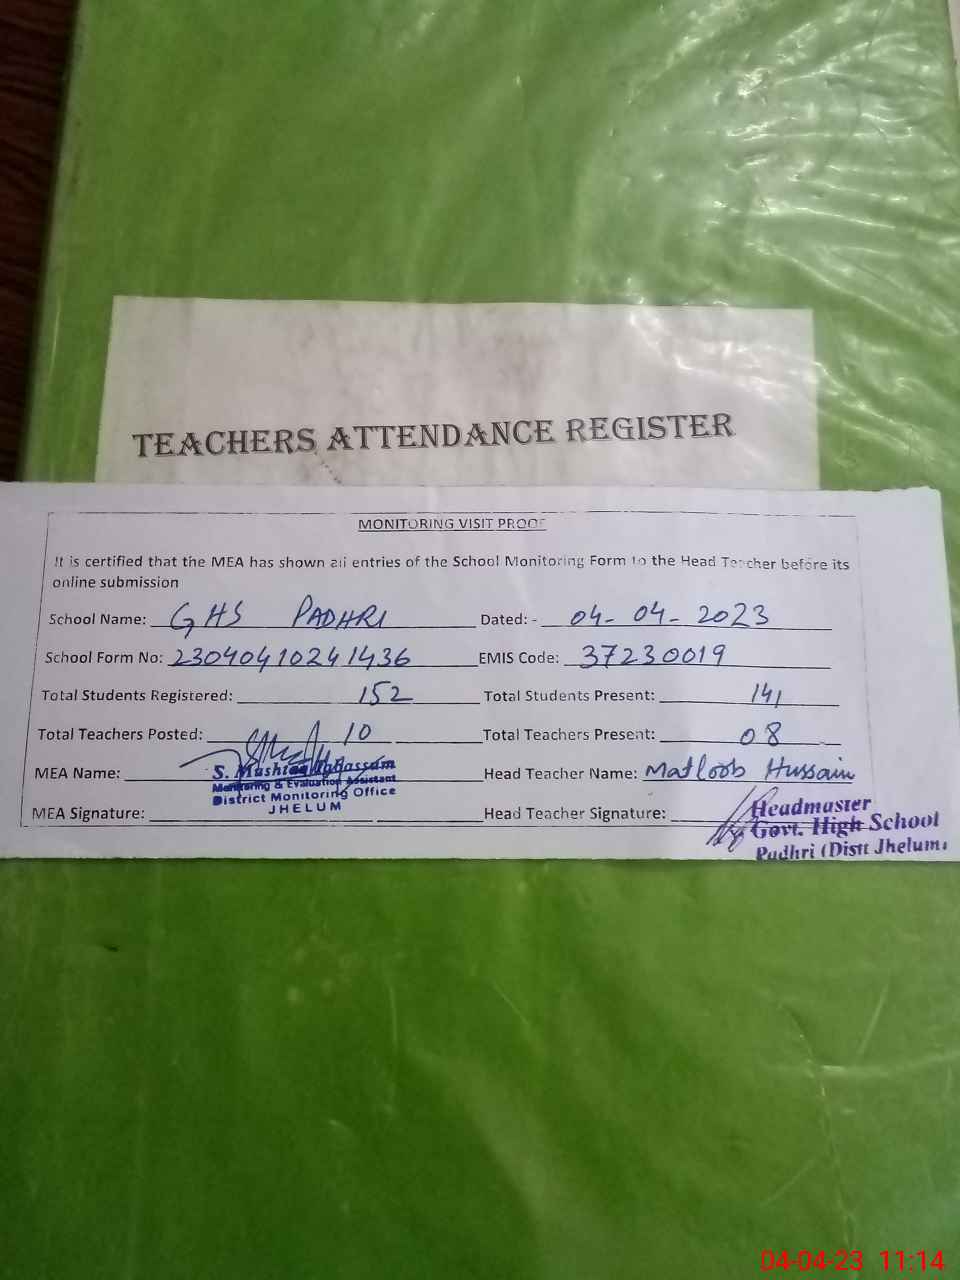 TEACHERS ATTENDANCE REGISTER
MONITORING VISIT PROOF
It is certified that the MEA has shown all entries of the School Monitoring Form to the Head Teacher before its
online submission
School Name: GHS PADHRI Dated: - 04-04-2023
School Form No: 23040410241436 EMIS Code: 37230019
Total Students Registered: 152 Total Students Present: 141
Total Teachers Posted: 10 Total Teachers Present: 08
MEA Name: S. Mushtaq Head Teacher Name: Matloob Hussain
Monitoring & Evaluation Assistant
District Monitoring Office
JHELUM
MEA Signature: Head Teacher Signature: Headmaster
Govt. High School
Padhri (Distt Jhelum)
04-04-23 11:14